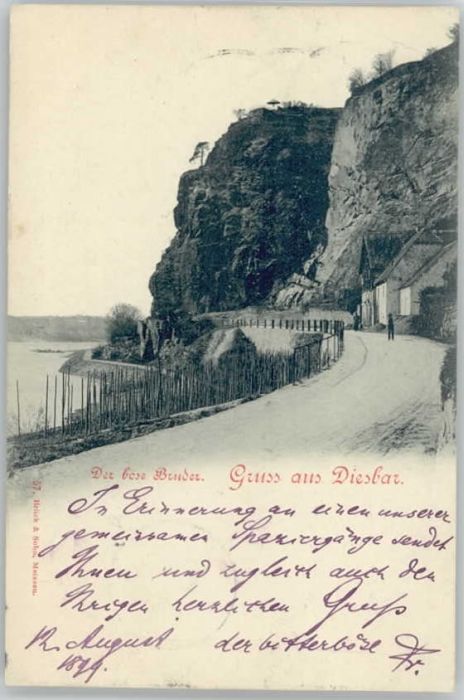 Der böse Bruder. Gruss aus Diesbar.
57, Brück & Sohn, Meissen.
In Erinnerung an einen unserer
gemeinsamen Spaziergänge sendet
Ihnen und zugleich auch den
Ihrigen herzlichen Gruß
12. August der bitterböse Fr.
1899.